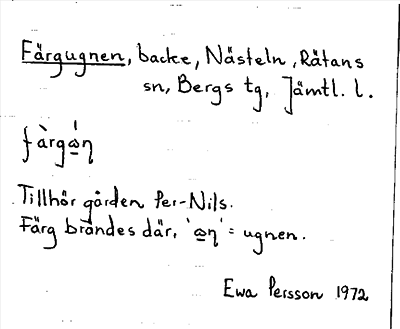 Färgugnen, backe, Nästeln, Rätans
sn, Bergs tg, Jämtl. l.
fàrgɷ̲́ŋ
Tillhör gården Per-Nils.
Färg brändes där, 'ɷ̲ŋ' = ugnen.
Ewa Persson 1972